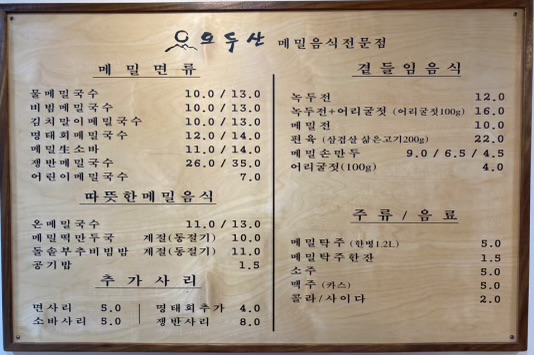 오두산 메밀음식전문점
메밀면류
물메밀국수 10.0 / 13.0
비빔메밀국수 10.0 / 13.0
김치말이메밀국수 10.0 / 13.0
명태회메밀국수 12.0 / 14.0
메밀生소바 11.0 / 14.0
쟁반메밀국수 26.0 / 35.0
어린이메밀국수 7.0
따뜻한메밀음식
온메밀국수 11.0 / 13.0
메밀떡만두국 계절(동절기) 10.0
돌솥부추비빔밥 계절(동절기) 11.0
공기밥 1.5
추가사리
면사리 5.0 명태회추가 4.0
소바사리 5.0 쟁반사리 8.0
곁들임음식
녹두전 12.0
녹두전+어리굴젓 (어리굴젓100g) 16.0
메밀전 10.0
편육 (삼겹살 삶은고기200g) 22.0
메밀손만두 9.0 / 6.5 / 4.5
어리굴젓(100g) 4.0
주류 / 음료
메밀탁주 (한병1.2L) 5.0
메밀탁주한잔 1.5
소주 5.0
맥주 (카스) 5.0
콜라/사이다 2.0